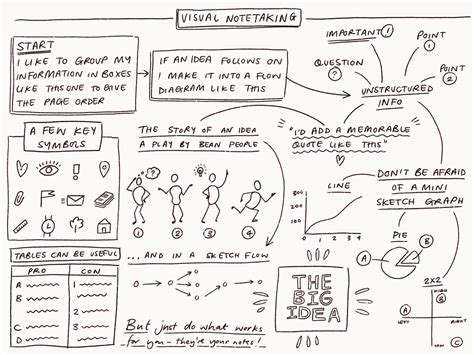 VISUAL NOTETAKING
START
I LIKE TO GROUP MY
INFORMATION IN BOXES
LIKE THIS ONE TO GIVE
THE PAGE ORDER
IF AN IDEA FOLLOWS ON
I MAKE IT INTO A FLOW
DIAGRAM LIKE THIS
IMPORTANT!
POINT
1
QUESTION
?
POINT
2
UNSTRUCTURED
INFO
A FEW KEY
SYMBOLS
!
THE STORY OF AN IDEA
A PLAY BY BEAN PEOPLE
1
2
3
4
"I'D ADD A MEMORABLE
QUOTE LIKE THIS"
DON'T BE AFRAID
OF A MINI
SKETCH GRAPH
LINE
300
200
100
0
0 1 2 3 4
PIE
A
B
2X2
HIGH
B
A
LEFT
RIGHT
LOW
C
TABLES CAN BE USEFUL
PRO
CON
A
B
C
D
1
2
3
4
...AND IN A SKETCH FLOW
THE
BIG
IDEA
But just do what works
for you - they're your notes!